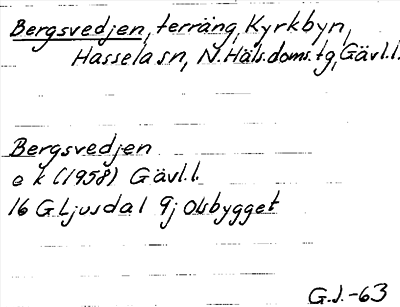 Bergsvedjen, terräng, Kyrkbyn,
Hassela sn, N.Häls.doms.tg, Gävl.l.
Bergsvedjen
e k (1958) Gävl.l.
16 G Ljusdal 9j Olsbygget
G.J.-63